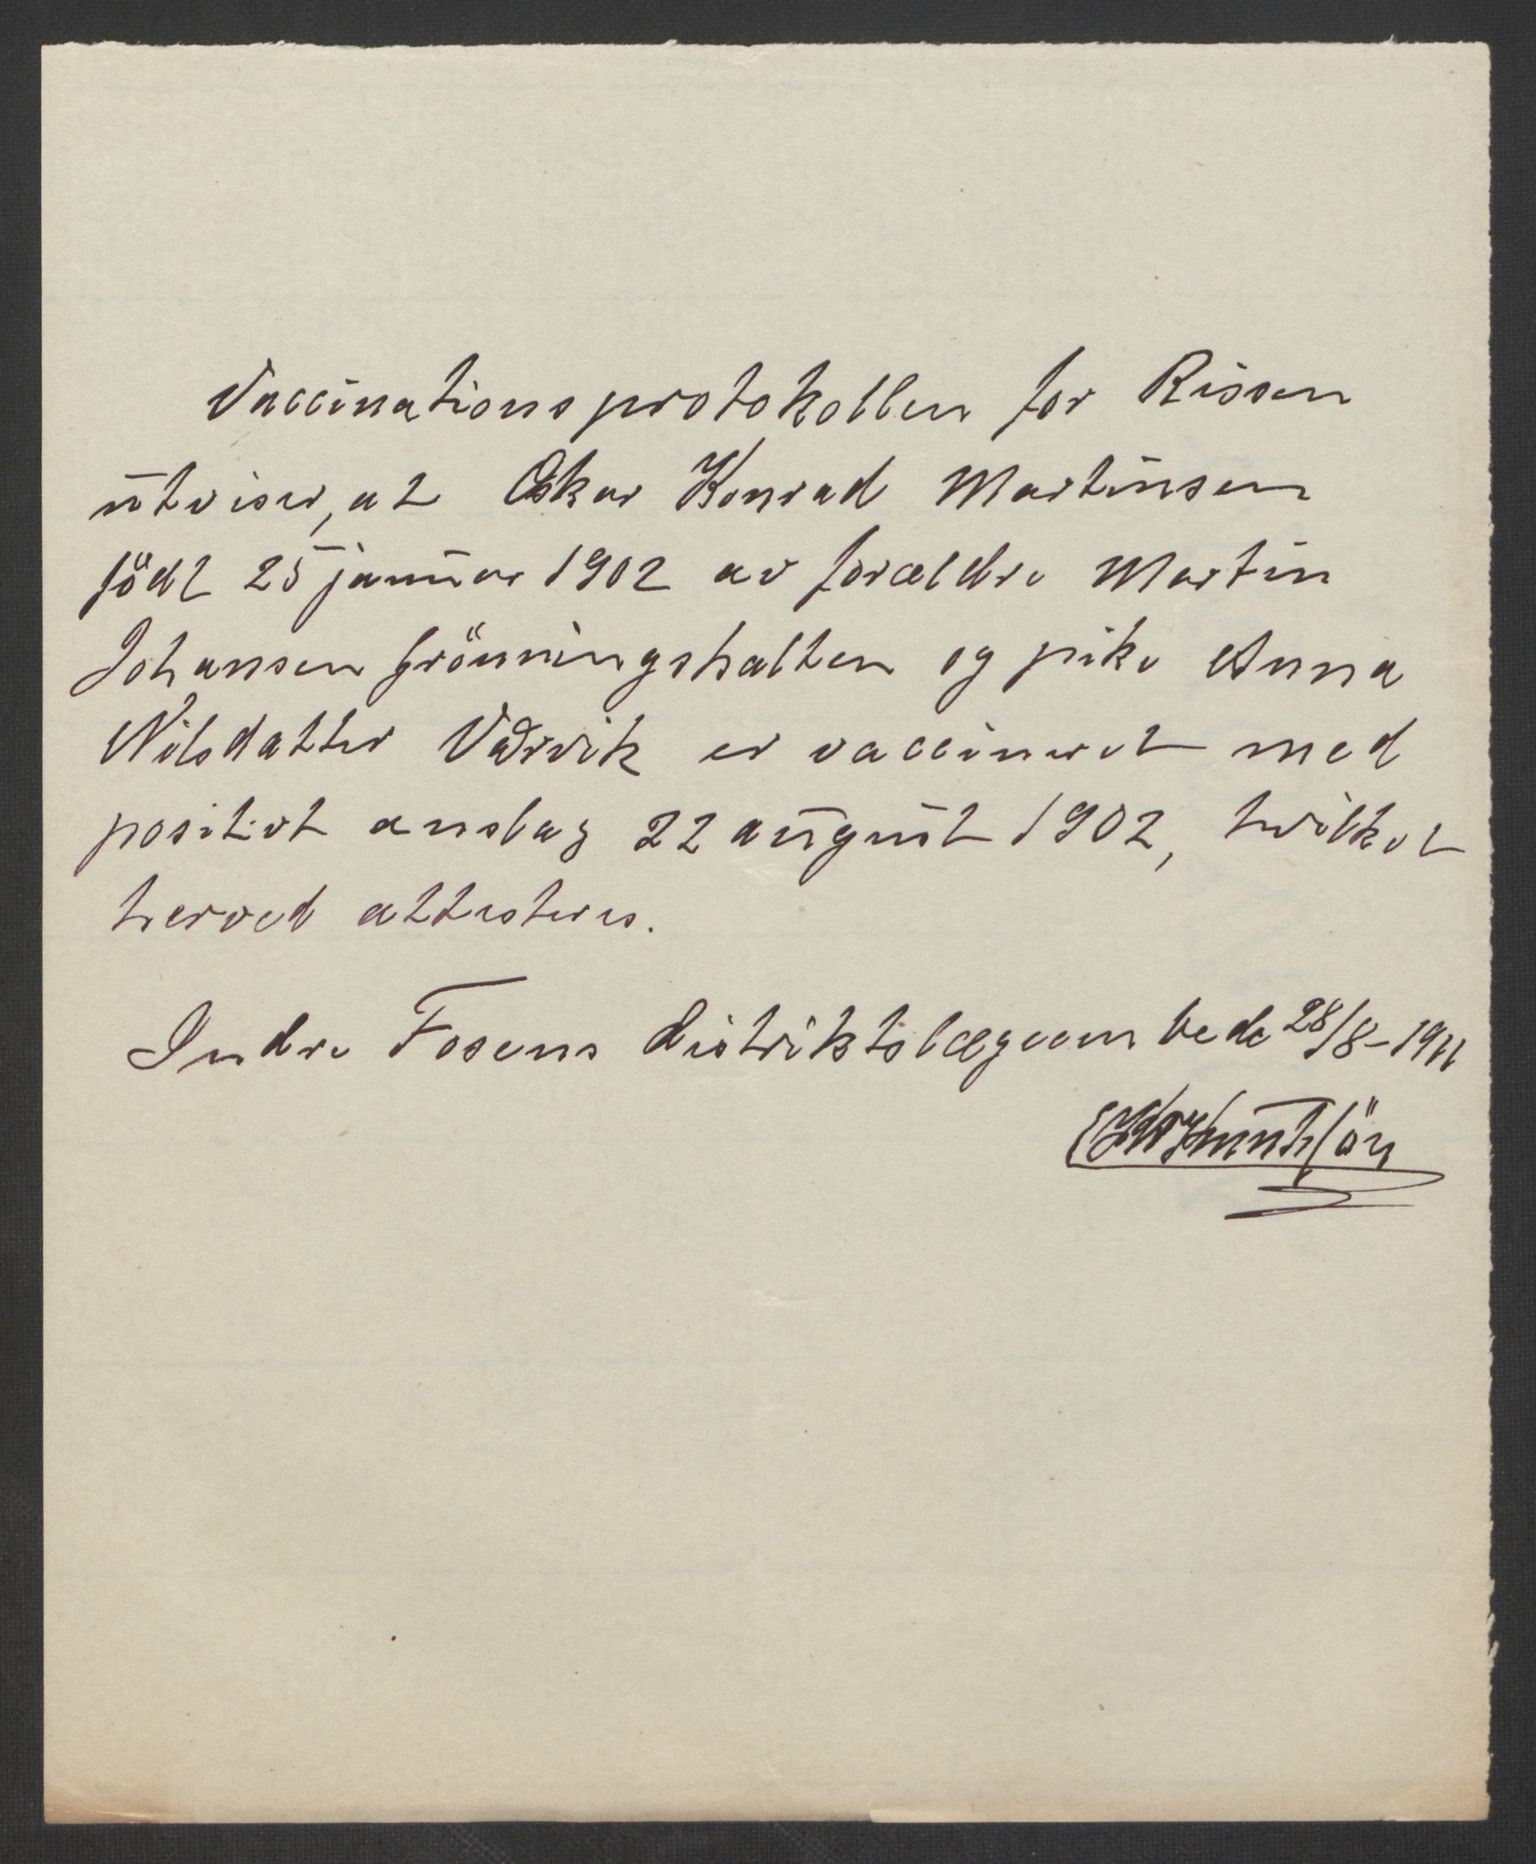 Vaccinationsprotokollen for Rissen
utviser, at Oskar Konrad Martinsen
född 25 januar 1902 av forældre Martin
Johansen Grönningshalten og pike Anna
Nilsdatter Vårvik er vaccineret med
positivt anslag 22 august 1902, hvilket
herved attesteres.
Indre Fosens distriktslægeembede 28/8-1911